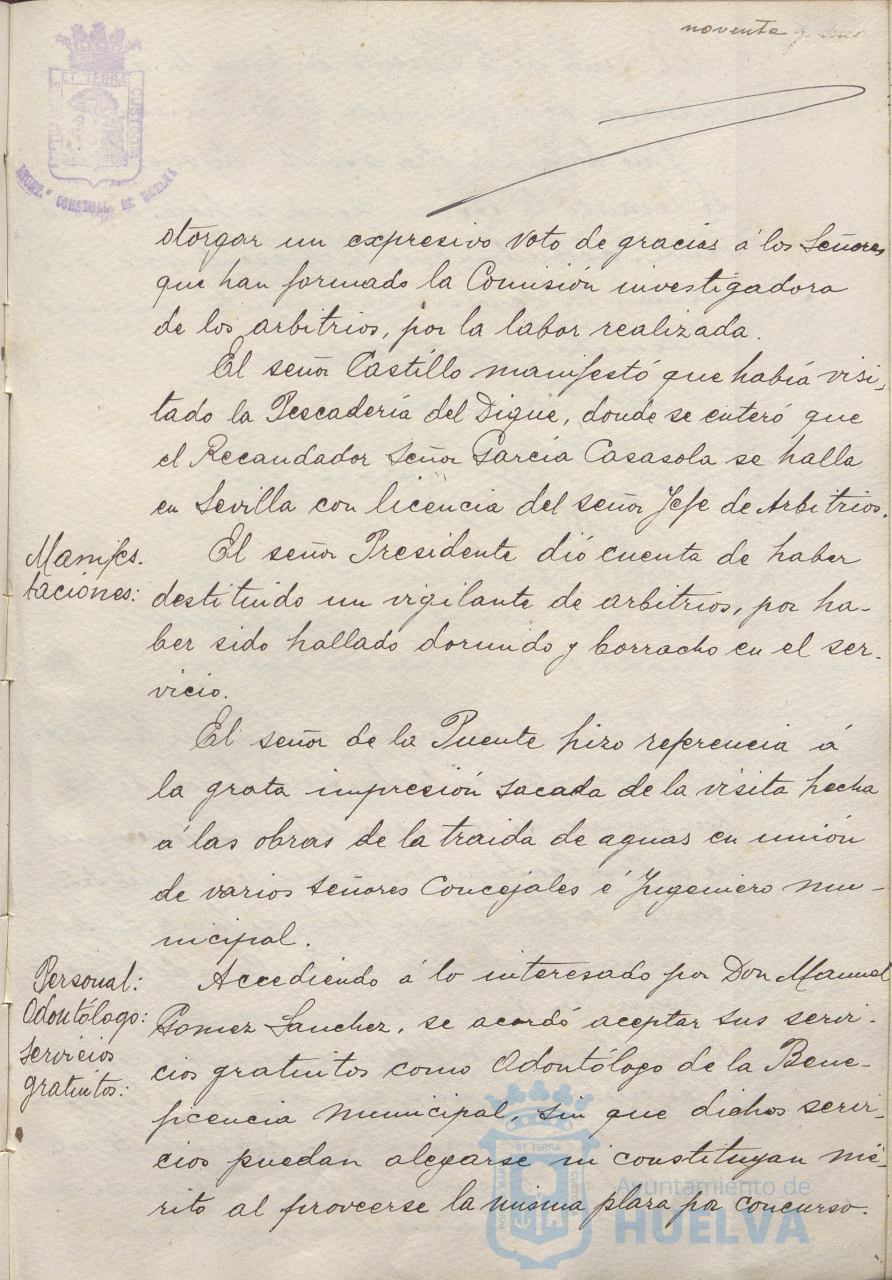 noventa y uno
ET TERRÆ
CUSTODIA
AYUNT.º CONSTNAL. DE HUELVA
otorgar un expresivo voto de gracias á los Señores
que han formado la Comisión investigadora
de los arbitrios, por la labor realizada.
El señor Castillo manifestó que había visi-
tado la Pescadería del Dique, donde se enteró que
el Recaudador Señor García Casasola se halla
en Sevilla con licencia del señor Jefe de Arbitrios.
Manifes-
taciones:
El señor Presidente dió cuenta de haber
destituido un vigilante de arbitrios, por ha-
ber sido hallado dormido y borracho en el ser-
vicio.
El señor de la Puente hizo referencia á
la grata impresión sacada de la visita hecha
á las obras de la traida de aguas en unión
de varios señores Concejales é Ingeniero mu-
nicipal.
Personal:
Odontólogo:
servicios
gratuitos:
Accediendo á lo interesado por Don Manuel
Gomez Sanchez, se acordó aceptar sus servi-
cios gratuitos como Odontólogo de la Bene-
ficencia municipal, sin que dichos servi-
cios puedan alegarse ni constituyan mé-
rito al proveerse la misma plaza por concurso.
ET TERRÆ
Ayuntamiento de
HUELVA